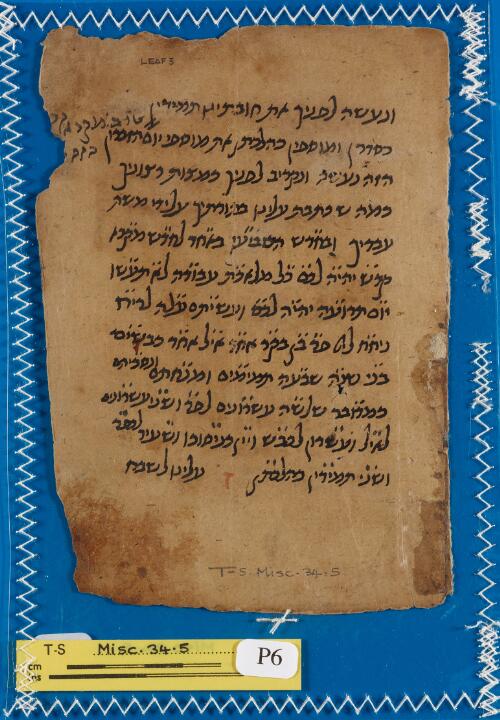 LEAF 3
ונעשה לפניך את חובותינו תמידין
כסדרן ומוספין כהלכתן את מוספי יום הזכרון
הזה נעשה ונקריב לפניך כמצות רצוניך
כמה שכתבת עלינו בתורתיך על ידי משה
עבדיך ובחדש השביעי באחד לחדש מקרא
קדש יהיה לכם כל מלאכת עבודה לא תעשו
יום תרועה יהיה לכם ועשיתם עלה לריח
ניחח לה פר בן בקר אחד איל אחד כבשים
בני שנה שבעה תמימים ומנחתם ונסכיהם
כמדובר שלשה עשרונים לפר ושני עשרונים
לאיל ועשרון לכבש ויין כניסוכו ושעיר לכפר
ושני תמידין כהלכתן עלינו לשבח
T-S. Misc. 34. 5
T-S Misc. 34.5
cm
ins
P6